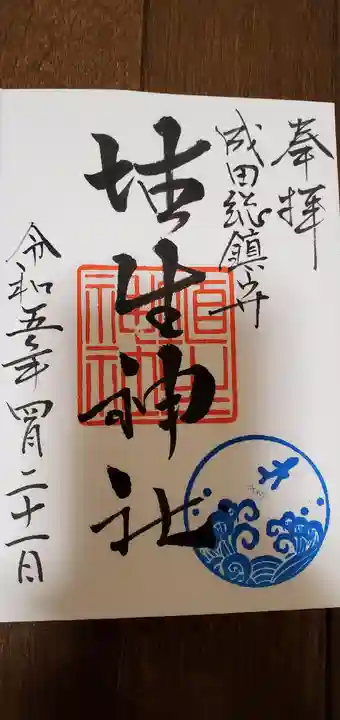 奉拝
成田総鎮守
埴生神社
埴生神社
令和五年四月二十一日